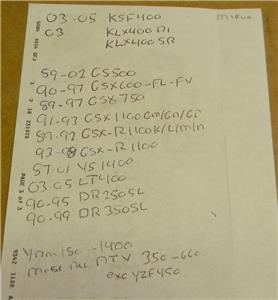 03-05 KSF400
03 KLX400 R1
KLX400 SR
89-02 GS500
90-97 GSX600-FL-FV
89-97 GSX750
91-93 GSX1100 Gm/Gn/GP
89-92 GSX-R1100K/L/m/n
93-98 GSX-R1100
87-01 VS1400
03-05 LT400
90-95 DR250SL
90-99 DR350SL
-1400
ATV 350-660
exc YZF450
PAGE 3 of 3